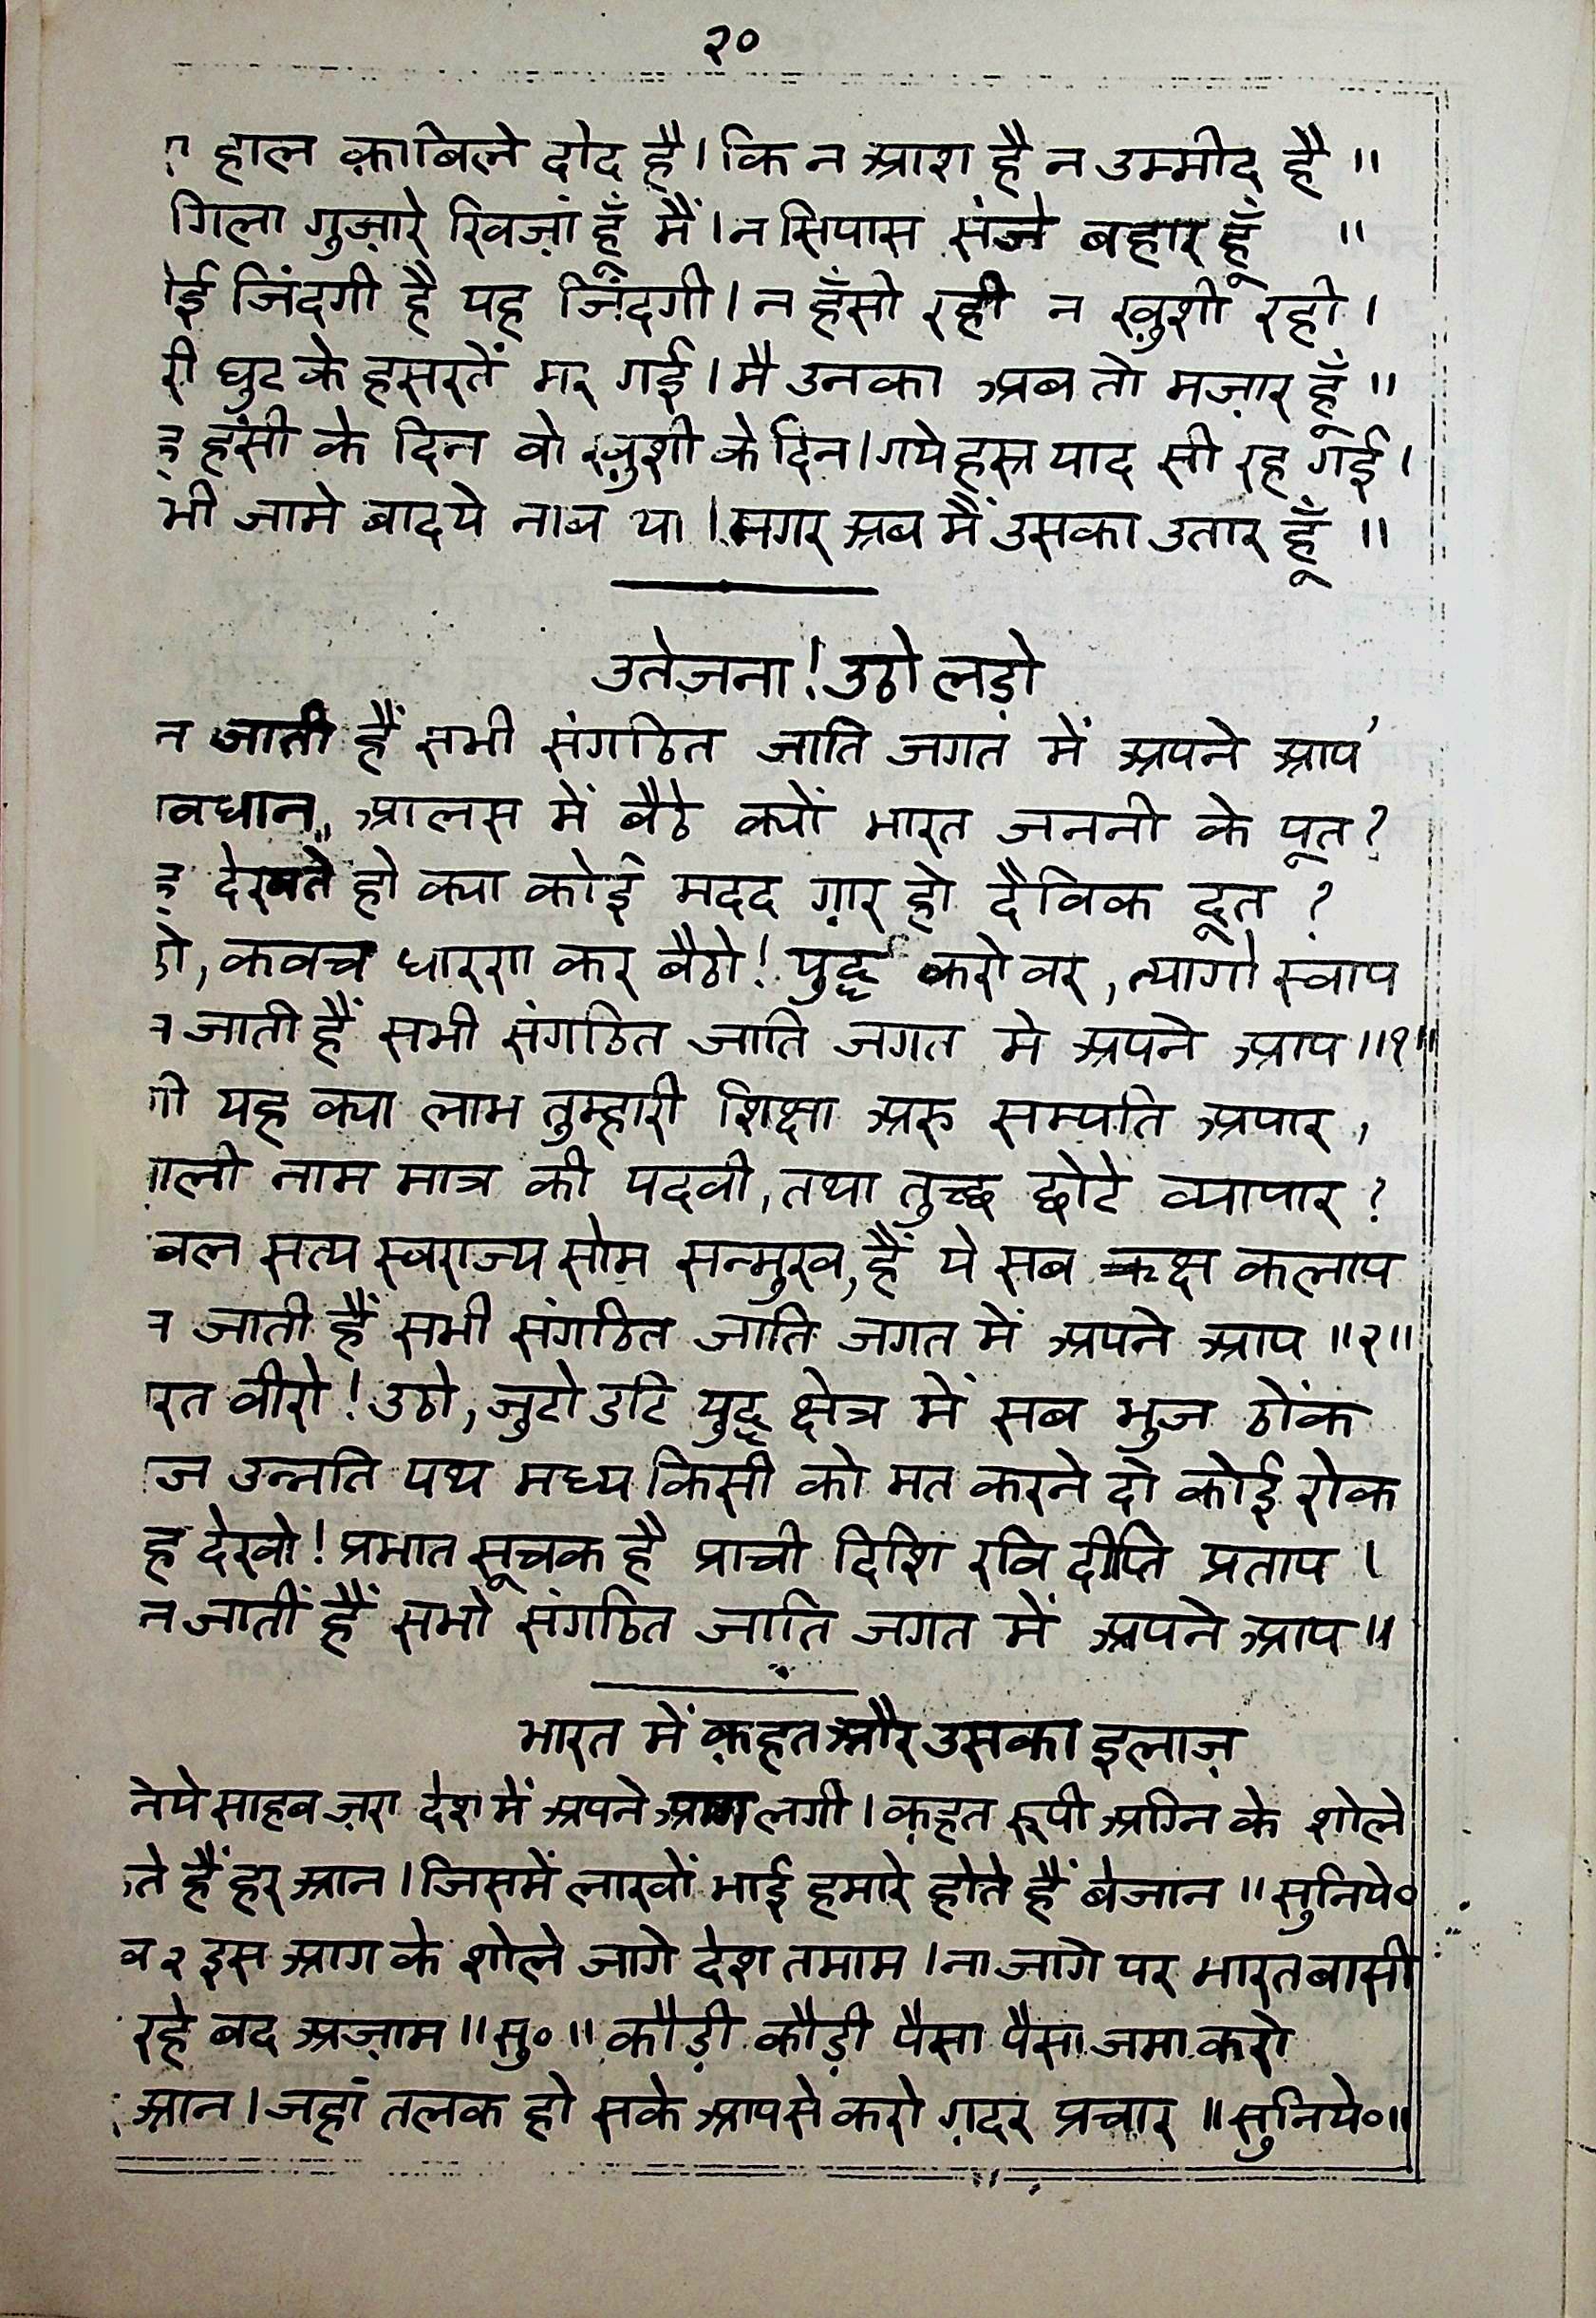 २०
हाल क़ाबिले दीद है। कि न आश है न उम्मीद है ॥
गिला गुज़ारे खिज़ां हूँ मैं। न सिपास संजे बहार हूँ ॥
ई जिंदगी है यह जिंदगी। न हँसी रही न ख़ुशी रही।
री घुट के हसरतें मर गई। मै उनका अब तो मज़ार हूँ ॥
हंसी के दिन वो ख़ुशी के दिन। गये हस्न याद सी रह गई।
भी जामे बादये नाब था। मगर अब मैं उसका उतार हूँ ॥
उतेजना! उठो लड़ो
न जाती हैं सभी संगठित जाति जगत में अपने आप
वधान,, आलस में बैठे क्यों भारत जननी के पूत?
देखते हो क्या कोई मदद ग़ार हो दैविक दूत?
ठो, कवच धारण कर बैठो! युद्ध करो वर, त्यागो स्वाप
जाती हैं सभी संगठित जाति जगत मे अपने आप ॥१॥
यह क्या लाभ तुम्हारी शिक्षा अरु सम्पति अपार,
ाली नाम मात्र की पदवी, तथा तुच्छ छोटे व्यापार?
बल सत्य स्वराज्य सोम सन्मुख, हैं ये सब कक्ष कलाप
जाती हैं सभी संगठित जाति जगत में अपने आप ॥२॥
रत वीरो! उठो, जुटो डटि युद्ध क्षेत्र में सब भुज ठोंक
ज उन्नति पथ मध्य किसी को मत करने दो कोई रोक
ह देखो! प्रभात सूचक है प्राची दिशि रवि दीप्ति प्रताप।
न जातीं हैं सभी संगठित जाति जगत में अपने आप ॥
भारत में क़हत और उसका इलाज़
नेये साहब ज़रा देश में अपने आग लगी। क़हत रूपी अग्नि के शोले
ते हैं हर आन। जिसमें लाखों भाई हमारे होते हैं बेजान ॥ सुनिये०
ब २ इस आग के शोले जागे देश तमाम। ना जागे पर भारत बासी
रहे बद अज़ाम ॥ सु० ॥ कौड़ी कौड़ी पैसा पैसा जमा करो
आन। जहां तलक हो सके आपसे करो ग़दर प्रचार ॥ सुनिये० ॥